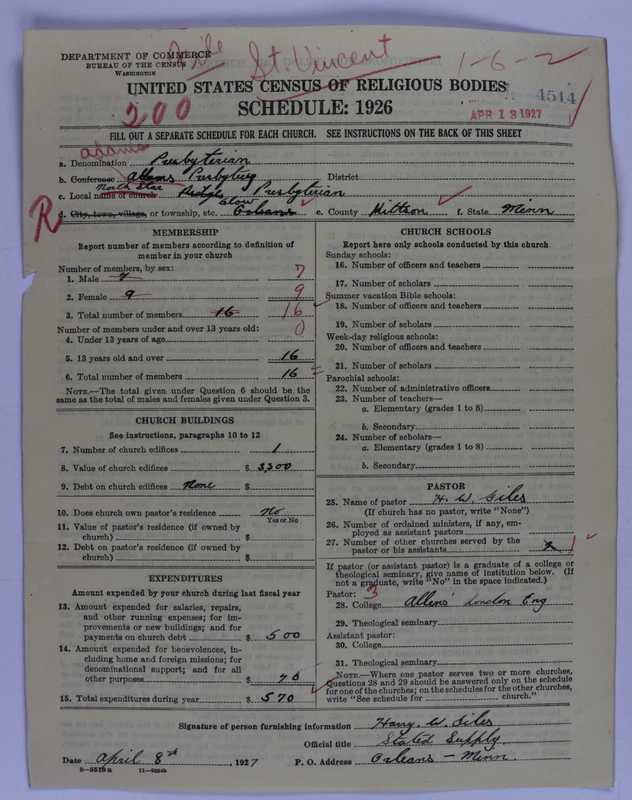 DEPARTMENT OF COMMERCE
BUREAU OF THE CENSUS
WASHINGTON
St. Vincent
1-6-2
UNITED STATES CENSUS OF RELIGIOUS BODIES
4514
200
SCHEDULE: 1926
APR 18 1927
FILL OUT A SEPARATE SCHEDULE FOR EACH CHURCH. SEE INSTRUCTIONS ON THE BACK OF THIS SHEET
adams
a. Denomination Presbyterian
b. Conference Adams Presbytery District
North Star
c. Local name of church Ridge Presbyterian
d. City, town, village, or township, etc. Orleans e. County Kittson f. State Minn
R
MEMBERSHIP
Report number of members according to definition of
member in your church
Number of members, by sex:
1. Male 7 7
2. Female 9 9
3. Total number of members 16 16
Number of members under and over 13 years old:
4. Under 13 years of age 0
5. 13 years old and over 16
6. Total number of members 16
NOTE.—The total given under Question 6 should be the
same as the total of males and females given under Question 3.
CHURCH BUILDINGS
See instructions, paragraphs 10 to 12
7. Number of church edifices 1
8. Value of church edifices $ 3300
9. Debt on church edifices None $
10. Does church own pastor's residence No
Yes or No
11. Value of pastor's residence (if owned by
church) $
12. Debt on pastor's residence (if owned by
church) $
EXPENDITURES
Amount expended by your church during last fiscal year
13. Amount expended for salaries, repairs,
and other running expenses; for im-
provements or new buildings; and for
payments on church debt $ 500
14. Amount expended for benevolences, in-
cluding home and foreign missions; for
denominational support; and for all
other purposes $ 70
15. Total expenditures during year $ 570
CHURCH SCHOOLS
Report here only schools conducted by this church
Sunday schools:
16. Number of officers and teachers
17. Number of scholars
Summer vacation Bible schools:
18. Number of officers and teachers
19. Number of scholars
Week-day religious schools:
20. Number of officers and teachers
21. Number of scholars
Parochial schools:
22. Number of administrative officers
23. Number of teachers—
a. Elementary (grades 1 to 8)
b. Secondary
24. Number of scholars—
a. Elementary (grades 1 to 8)
b. Secondary
PASTOR
25. Name of pastor H. W. Giles
(If church has no pastor, write "None")
26. Number of ordained ministers, if any, em-
ployed as assistant pastors
27. Number of other churches served by the
pastor or his assistants 1
If pastor (or assistant pastor) is a graduate of a college or
theological seminary, give name of institution below. (If
not a graduate, write "No" in the space indicated.)
Pastor: 3
28. College Allens' London Eng
29. Theological seminary
Assistant pastor:
30. College
31. Theological seminary
NOTE.—Where one pastor serves two or more churches,
Questions 28 and 29 should be answered only on the schedule
for one of the churches; on the schedules for the other churches,
write "See schedule for church."
Signature of person furnishing information Harry W. Giles
Official title Stated Supply.
Date April 8th, 1927 P. O. Address Orleans — Minn.
8—5518a 11—9554b